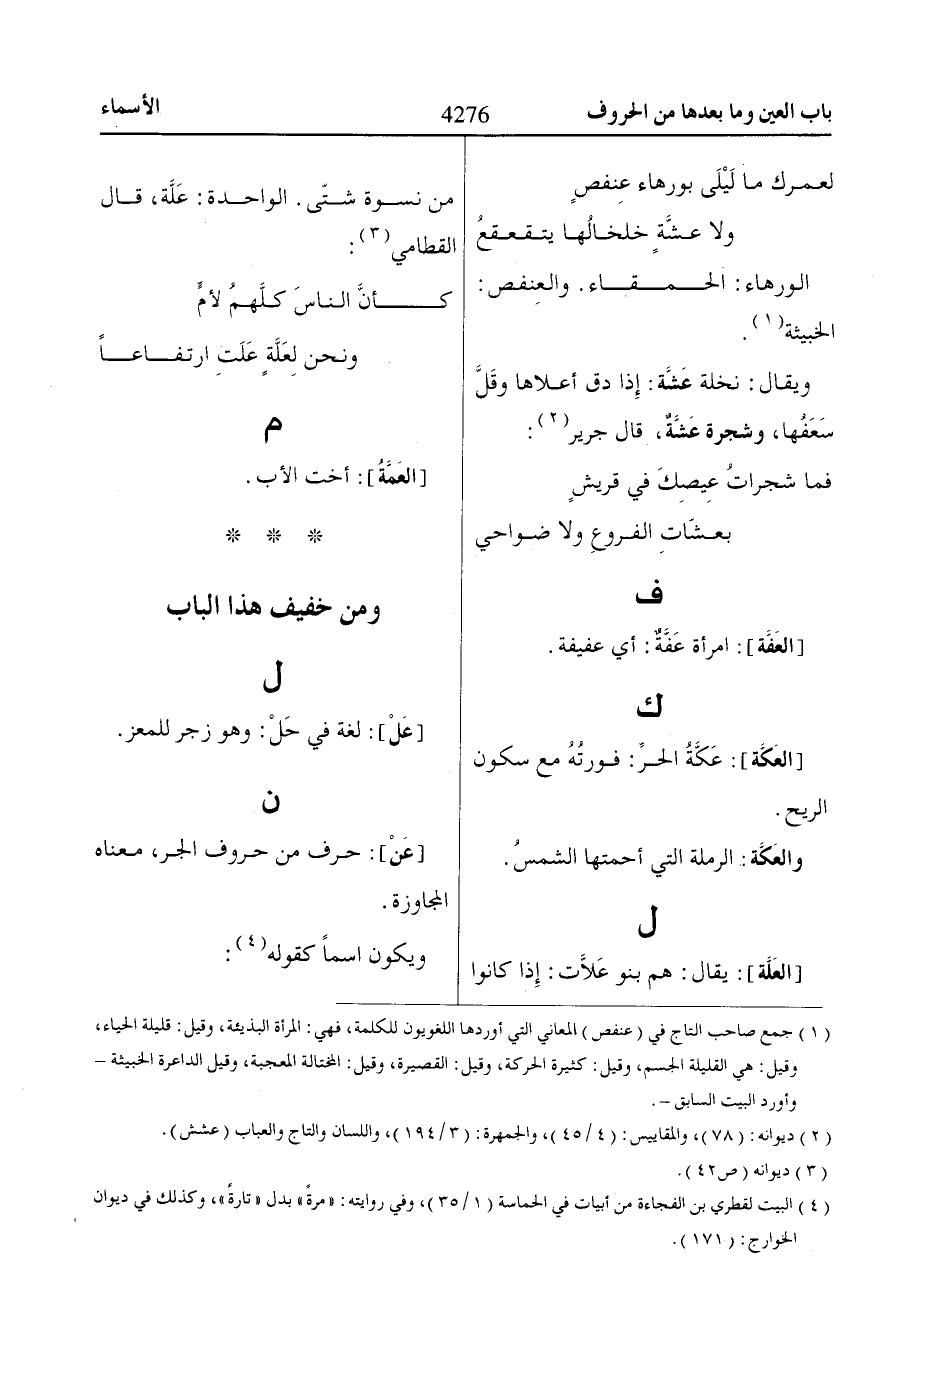 باب العين وما بعدها من الحروف 4276 الأسماء
لعمرك ما لَيْلَى بورهاء عِنفصٍ
ولا عشَّةٍ خلخالُها يتقعقعُ
الورهاء: الحمقاء. والعِنفص:
الخبيثة(١).
ويقال: نخلة عَشَّة: إِذا دق أعلاها وقَلَّ
سَعَفُها، وشجرة عَشَّةٌ، قال جرير(٢):
فما شجراتُ عِيصِكَ في قريشٍ
بعشَّاتِ الفروعِ ولا ضواحي
ف
[العَفَّة]: امرأة عَفَّةٌ: أي عفيفة.
ك
[العَكَّة]: عَكَّةُ الحرِّ: فورتُهُ مع سكون
الريح.
والعَكَّة: الرملة التي أحمتها الشمسُ.
ل
[العَلَّة]: يقال: هم بنو عَلاَّت: إِذا كانوا
من نسوة شتّى. الواحدة: عَلَّة، قال
القطامي(٣):
كأنَّ الناسَ كلَّهمُ لأمٍّ
ونحن لِعَلَّةٍ عَلَتِ ارتفاعاً
م
[العَمَّةُ]: أخت الأب.
* * *
ومن خفيف هذا الباب
ل
[عَلْ]: لغة في حَلْ: وهو زجر للمعز.
ن
[عَنْ]: حرف من حروف الجر، معناه
المجاوزة.
ويكون اسماً كقوله(٤):
(١) جمع صاحب التاج في (عنفص) المعاني التي أوردها اللغويون للكلمة، فهي: المرأة البذيئة، وقيل: قليلة الحياء،
وقيل: هي القليلة الجسم، وقيل: كثيرة الحركة، وقيل: القصيرة، وقيل: المختالة المعجبة، وقيل الداعرة الخبيثة –
وأورد البيت السابق –.
(٢) ديوانه: (٧٨)، والمقاييس: (٤/٤٥)، والجمهرة: (٣/١٩٤)، واللسان والتاج والعباب (عشش).
(٣) ديوانه (ص٤٢).
(٤) البيت لقطري بن الفجاءة من أبيات في الحماسة (١/٣٥)، وفي روايته: «مرةً» بدل «تارةً»، وكذلك في ديوان
الخوارج: (١٧١).